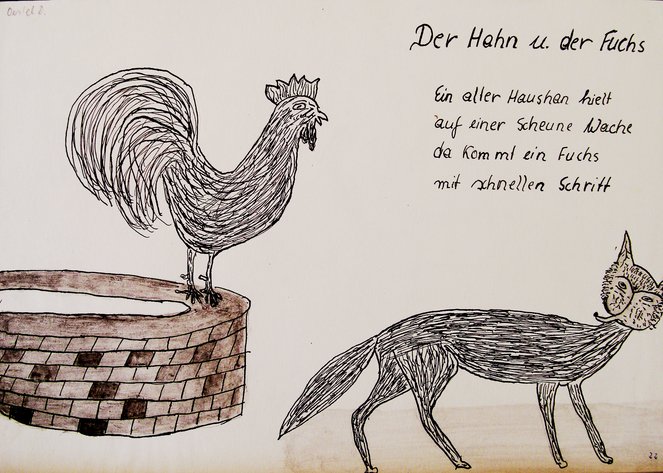 Der Hahn u. der Fuchs
Ein aller Haushan hielt
auf einer Scheune Wache
da Komml ein Fuchs
mit schnellen Schritt
22